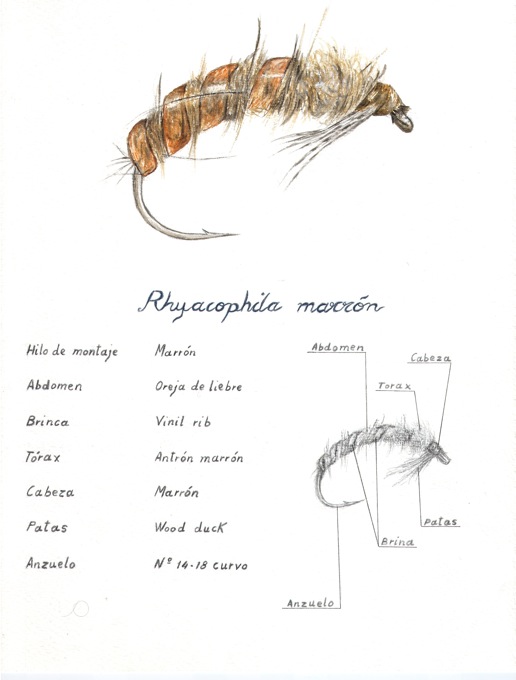 Rhyacophila marrón
Hilo de montaje Marrón
Abdomen Oreja de liebre
Brinca Vinil rib
Tórax Antrón marrón
Cabeza Marrón
Patas Wood duck
Anzuelo Nº 14-18 curvo
Abdomen
Cabeza
Torax
Patas
Brina
Anzuelo